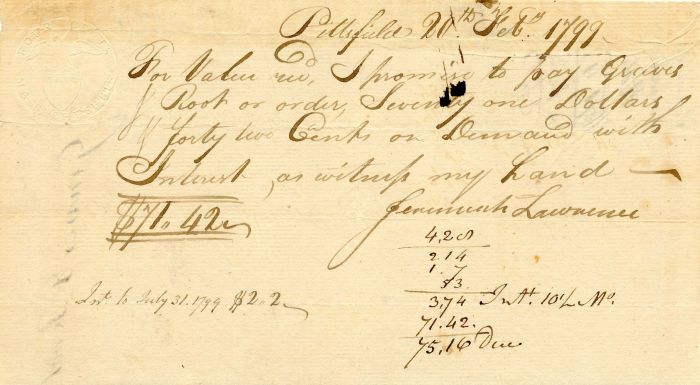 Pittsfield 20th Feby. 1799
For Value recd, I promise to pay Graves
Root or order, Seventy one Dollars
forty two Cents on Demand with
Interest, as witness my hand
$71,, 42
Jeremiah Lawrence
4,28
2 14
1.7
53
3,74 Intt. 10½ Mo.
71.42.
75,16 Due
Int. to July 31. 1799 $2..2